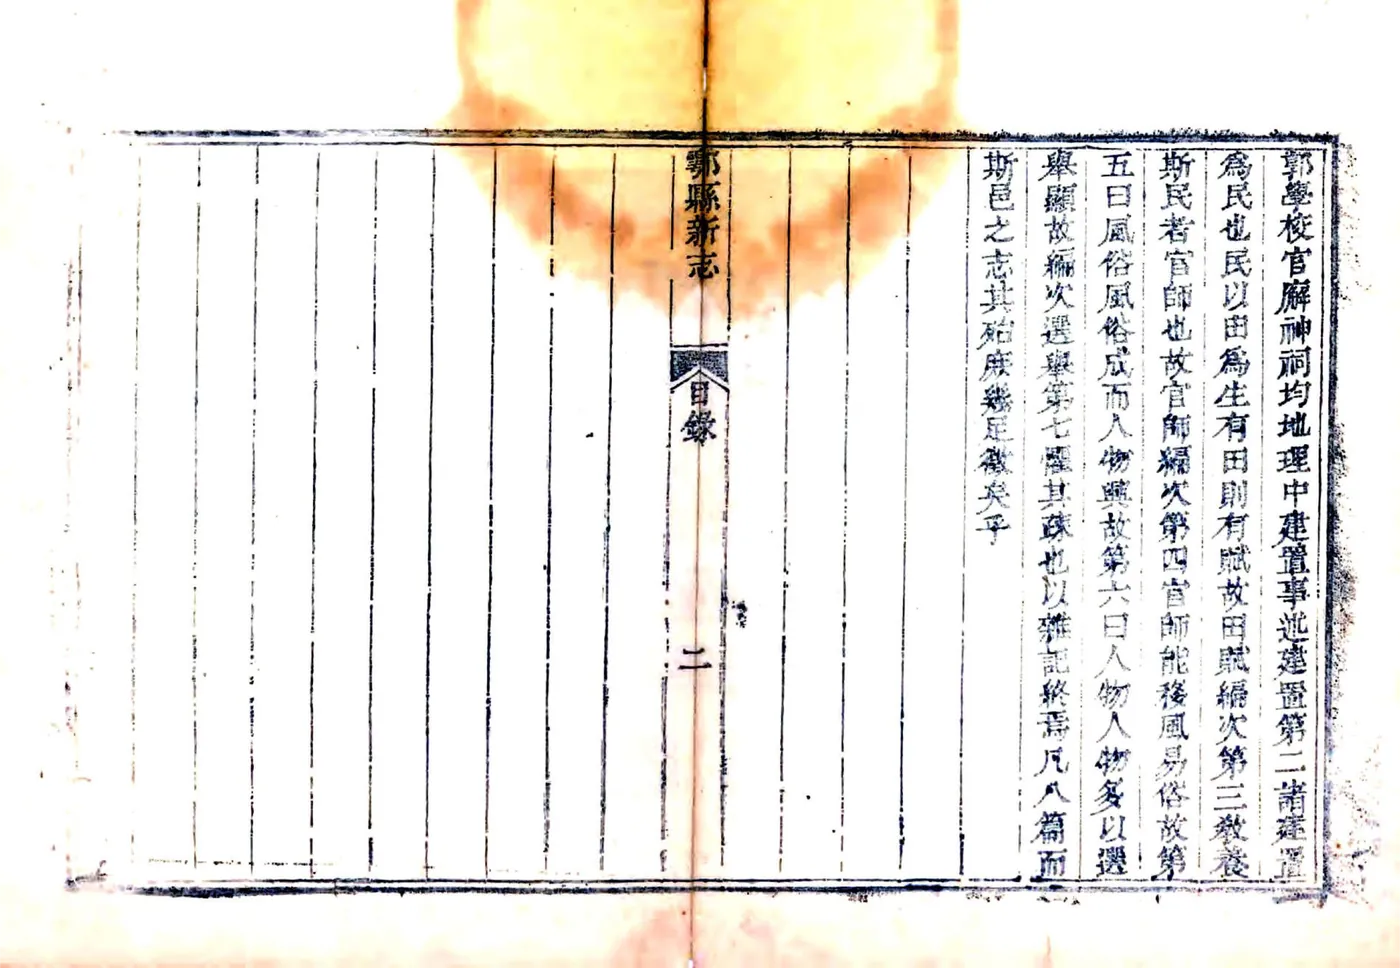 郭學校官廨神祠均地理中建置事述建置第二諸建置
爲民也民以田爲生有田則有賦故田賦編次第三敎養
斯民者官師也故官師編次第四官師能移風易俗故第
五曰風俗風俗成而人物興故第六曰人物人物多以選
舉顯故編次選舉第七懼其疎也以雜記終焉凡八篇而
斯邑之志其殆庶幾足徵矣乎
鄠縣新志
目錄
二